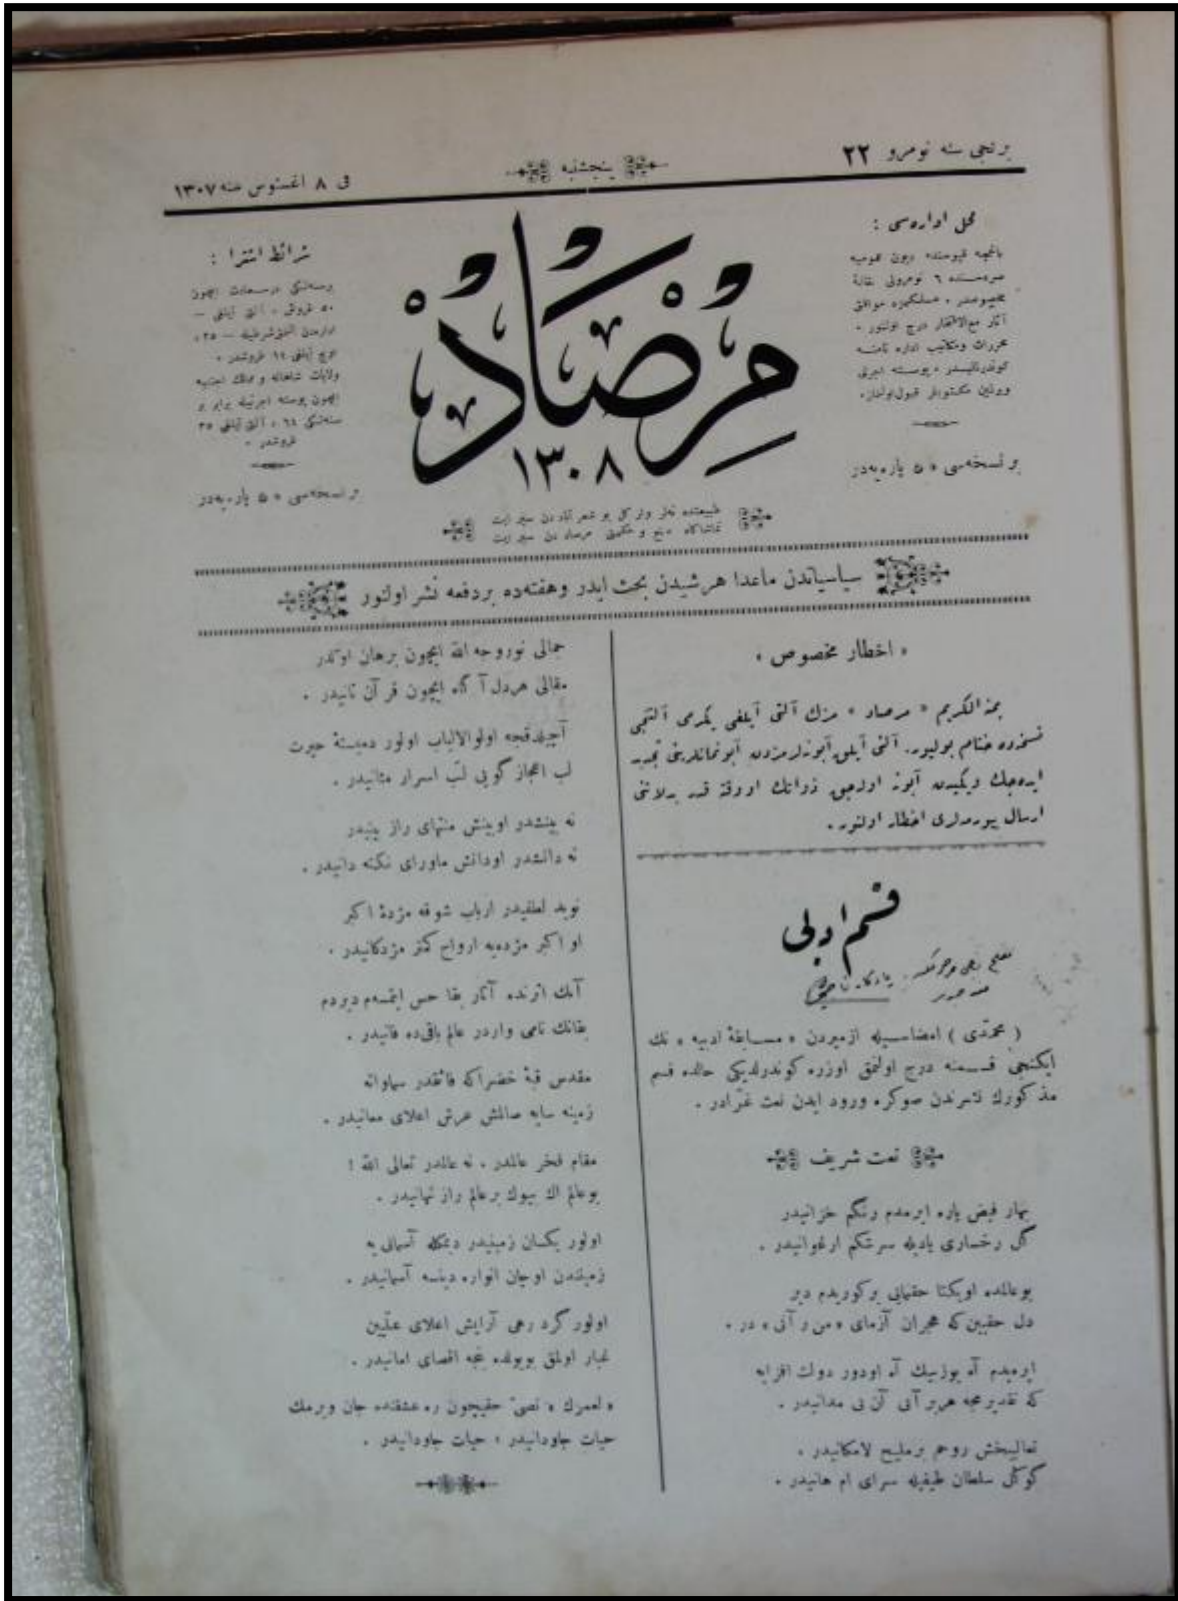 برنجی سنه نومرو ٢٢
پنجشنبه
فی ٨ اغستوس سنه ١٣٠٧
محل اداره‌سی :
باغچه قپوسنده دیون عمومیه
صره‌سنده ٦ نومرولی
مخصوصدر . مسلکمزه موافق
آثار مع‌الافتخار درج اولنور .
محررات ومکاتیب اداره نامنه
کوندرلیدر . پوسته اجرتی
ویرلمین مکتوبلر قبول اولنماز .
بر نسخه‌سی ٥٠ پاره‌یه‌در
مرصاد
١٣٠٨
شرائط اشترا :
برسنه‌لکی درسعادت ایچون
٥٠ غروش . آلتی آیلغی —
اداره‌دن آلنمق شرطیله — ٢٥ .
اوچ آیلغی ١٤ غروشدر .
ولایات شاهانه و ممالک اجنبیه
ایچون پوسته اجرتیله برابر بر
سنه‌لکی ٦٤ . آلتی آیلغی ٣٥
غروشدر .
بر نسخه‌سی ٥٠ پاره‌یه‌در
طبیعتده نه‌لر وار کل بو شعر آباددن سیر ایت
تماشاگاه صنع و حکمتی مرصاددن سیر ایت
سیاسیاتدن ماعدا هر شیدن بحث ایدر وهفته‌ده بردفعه نشر اولنور
« اخطار مخصوص »
بمنه الکریم « مرصاد » مزک آلتی آیلغی یکرمی آلتنجی
نسخه‌ده ختام بولیور. آلتی آیلق آبونه‌لرمزدن آبونمانلرینی تجدید
ایده‌جک ویکیدن آبونه اوله‌جق ذواتک اووقته قدر بدلاتنی
ارسال بیورملری اخطار اولنور .
قسم ادبی
( محمدی ) امضاسیله ازمیردن « مسابقهٔ ادبیه » نک
ایکنجی قسمنه درج اولنمق اوزره کوندرلدیکی حالده قسم
مذکورک نشرندن صوکره ورود ایدن نعت غرّادر .
نعت شریف
بهار فیض یاره ایرمدم رنگم خزانیدر
گل رخساری یادیله سرشکم ارغوانیدر .
بوعالمده اویکتا حقنمایی برکوریدم دیر
دل حقبین که هجران آزمای « من رآنی » در .
ایرمیدم آه بوزنیک آه اودور دولت افزایه
که تقدیرمجه هربر آنی آن بی مدانیدر .
تعالیبخش روحم برملیح لامکانیدر .
کوکل سلطان طیفیله سرای ام هانیدر .
جمالی نوروجه الله ایچون برهان اوکدر
مقالی هردل آگاه ایچون قرآن ثانیدر .
آچیلدقجه اولوالالباب اولور دمبستهٔ حیرت
لب اعجاز گویی لبّ اسرار مثانیدر .
نه بینشدر اوبینش منتهای راز بینیدر
نه دانشدر اودانش ماورای نکته دانیدر .
نوید لطفیدر ارباب شوقه مژدهٔ اکبر
او اکبر مژده‌یه ارواح کمتر مژدکانیدر .
آنک اثرنده آثار بقا حس ایتمسه‌م دیردم
بقانک نامی واردر عالم باقی‌ده فانیدر .
مقدس قبهٔ خضراکه فائقدر سماواته
زمینه سایه صالمش عرش اعلای معانیدر .
مقام فخر عالمدر . نه عالمدر تعالی الله !
بوعالم اک بیوک برعالم راز نهانیدر .
اولور یکسان زمینیدر دیمکله آسمانی یه
زمیندن اوجان انواره دینسه آسمانیدر .
اولور گرد رهی آرایش اعلای علیین
غبار اولمق بویولده نیجه اقصای امانیدر .
« لعمرک » نصیّ حقیچون ره عشقنده جان ویرمک
حیات جاودانیدر ، حیات جاودانیدر .